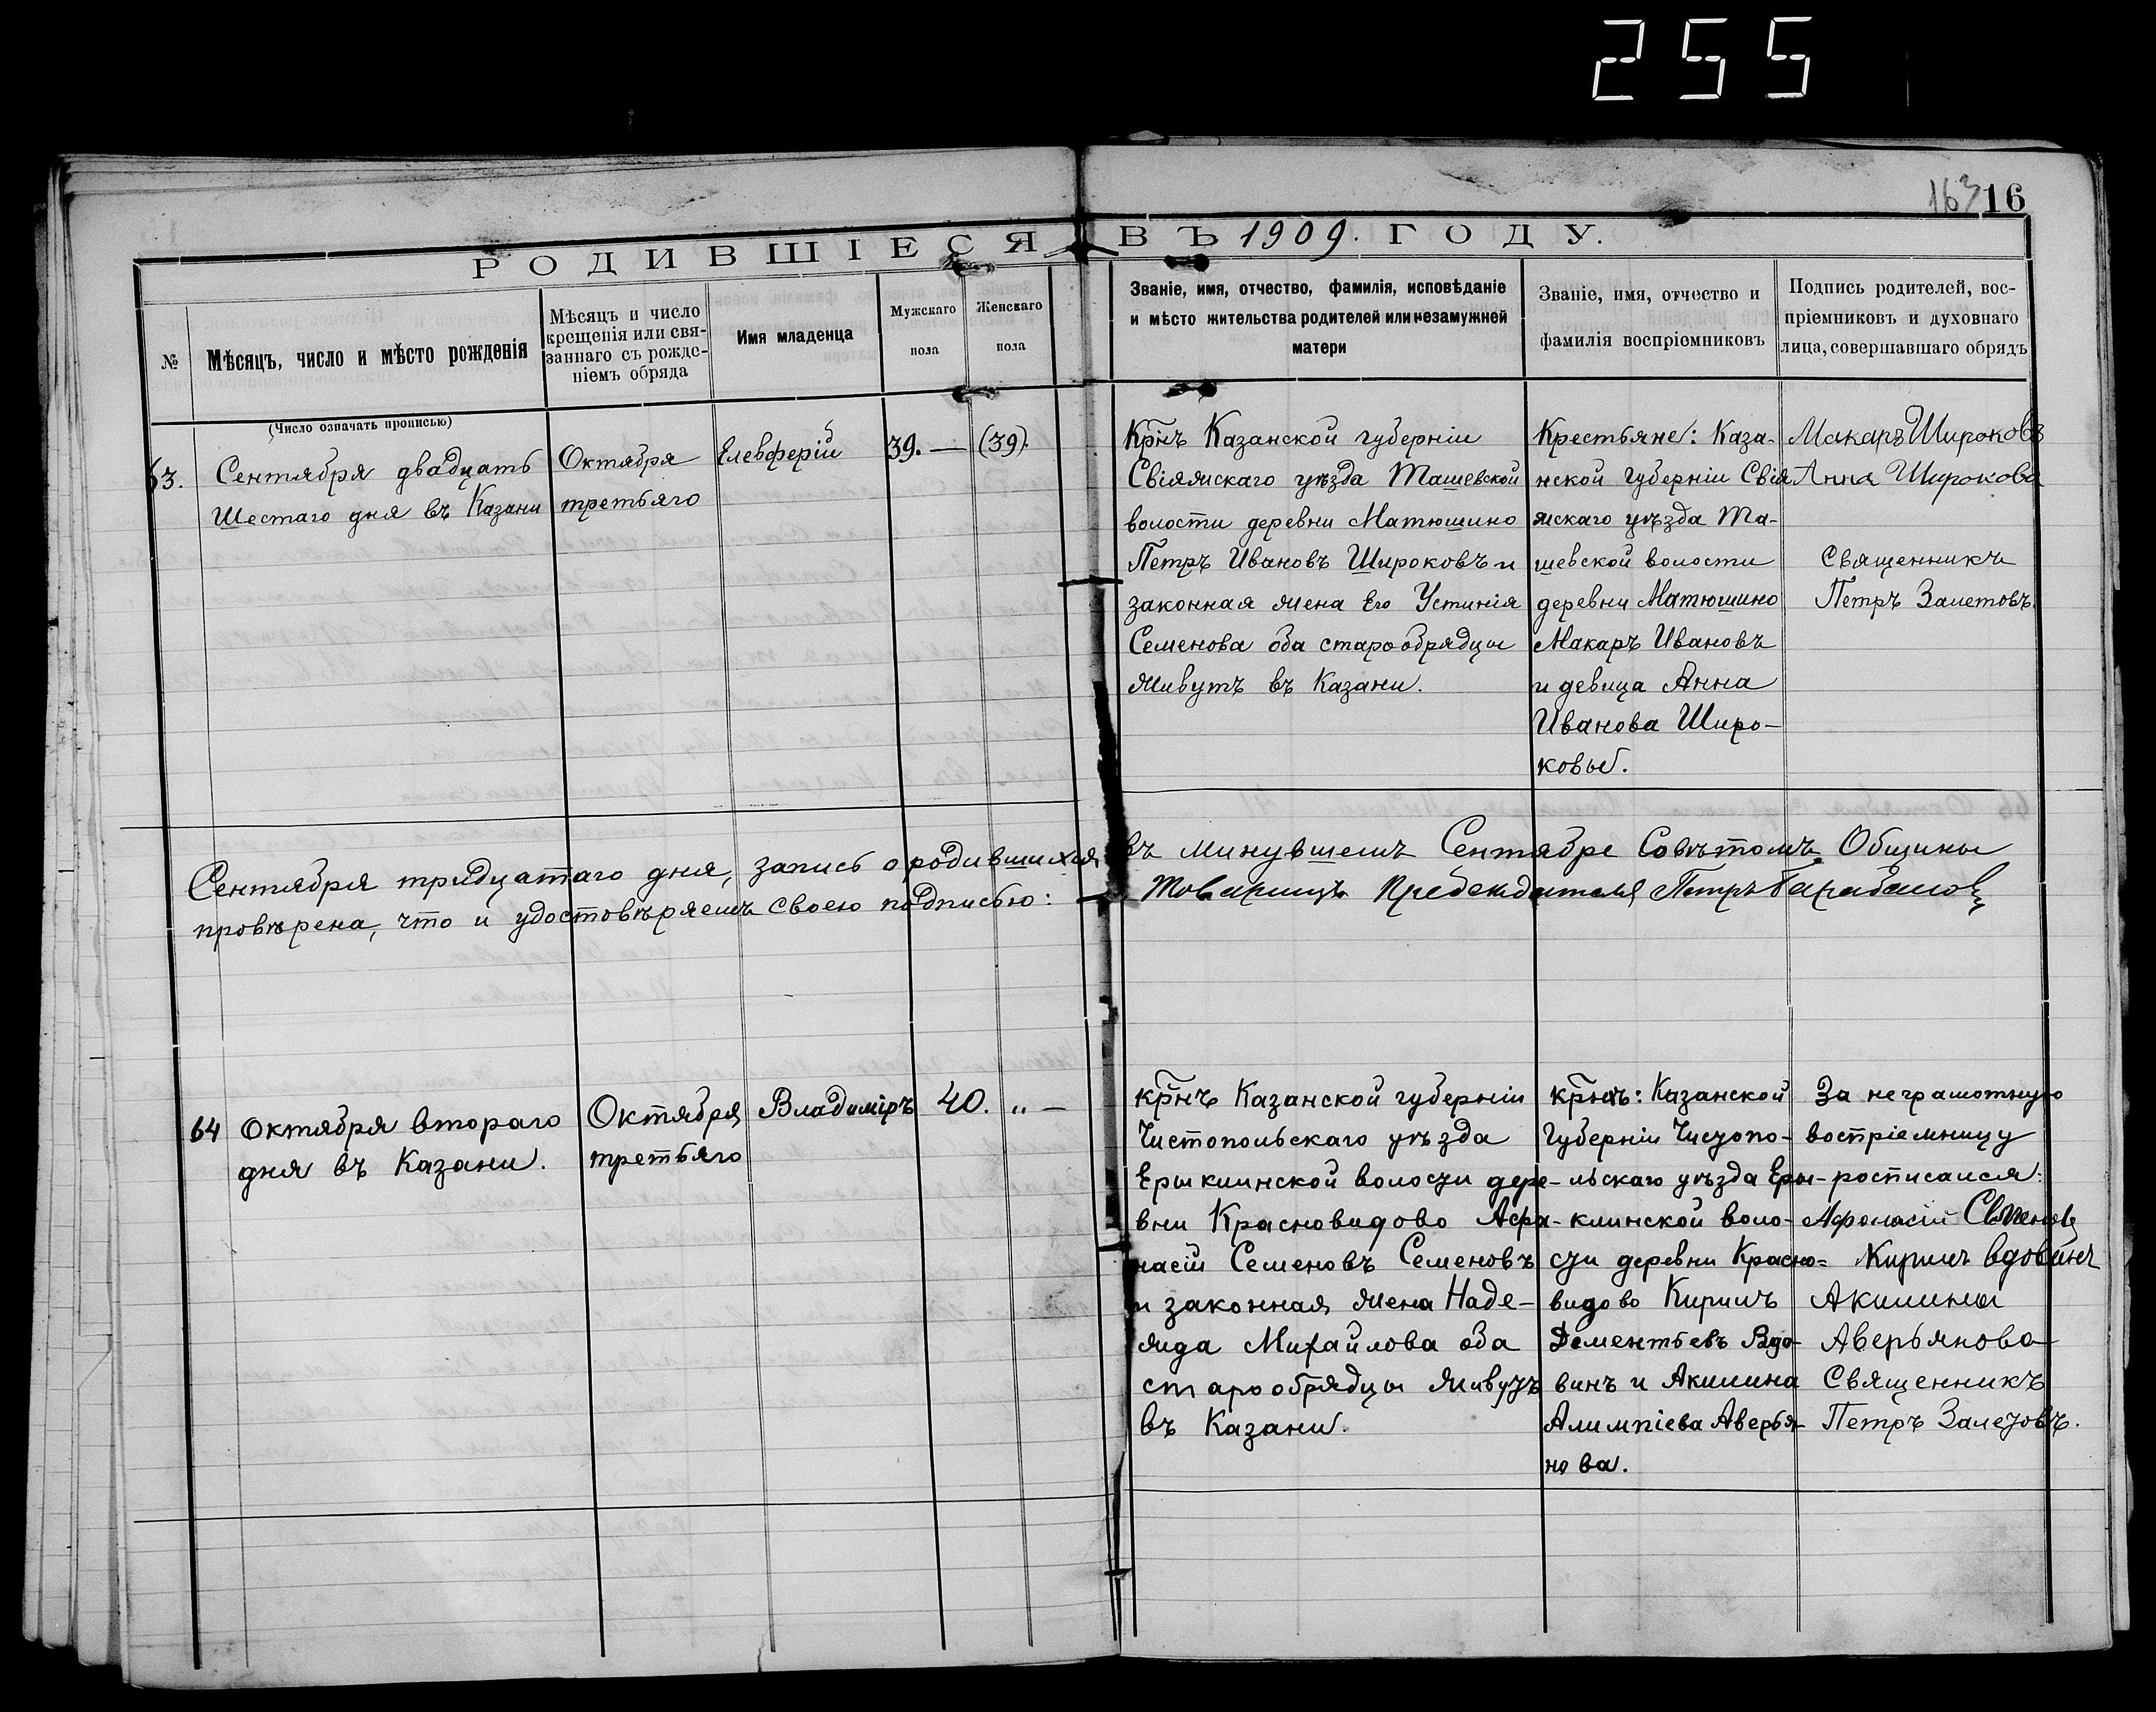 255
163 16
РОДИВШІЕСЯ ВЪ 1909. ГОДУ.
№
Мѣсяцъ, число и мѣсто рожденія
Мѣсяцъ и число
крещенія или свя-
заннаго съ рожде-
ніемъ обряда
Имя младенца
Мужскаго
пола
Женскаго
пола
Званіе, имя, отчество, фамилія, исповѣданіе
и мѣсто жительства родителей или незамужней
матери
Званіе, имя, отчество и
фамилія воспріемниковъ
Подпись родителей, вос-
пріемниковъ и духовнаго
лица, совершавшаго обрядъ
(Число означать прописью)
63.
Сентября двадцать
Шестаго дня въ Казани
Октября
третьяго
Елевферій
39. —
(39).
Крнъ Казанской губерніи
Свіяжскаго уѣзда Ташевской
волости деревни Матюшино
Петръ Ивановъ Широковъ и
законная жена Его Устинія
Семенова оба старообрядцы
живутъ въ Казани.
Крестьяне: Каза-
нской Губерніи Свія
жскаго уѣзда Та-
шевской волости
деревни Матюшино
Макаръ Ивановъ
и девица Анна
Иванова Широ-
ковы.
Макаръ Широковъ
Анна Широкова
Священникъ
Петръ Залетовъ.
Сентября тридцатаго дня, запись о родившихся въ минувшемъ Сентябре Совѣтомъ Общины
провѣрена, что и удостовѣряемъ своею подписью: Товарищъ Председателя Петръ Барабанов
64
Октября втораго
дня въ Казани.
Октября
третьяго
Владиміръ
40.
„ —
крнъ Казанской губерніи
Чистопольскаго уѣзда
Ерыклинской волости дере-
вни Красновидово Афа-
насій Семеновъ Семеновъ
и законная жена Наде-
жда Михайлова оба
старообрядцы живутъ
въ Казани.
крнъ: Казанской
Губерніи Чистопо-
льскаго уѣзда Еры-
клинской воло-
сти деревни Красно-
видово Кирилъ
Дементьевъ Вдо-
винъ и Акилина
Алимпіева Аверья-
нова.
За неграмотную
воспріемницу
росписался:
Афонасій Семенов
Кирилъ Вдовинъ
Акилины
Аверьянова
Священникъ
Петръ Залетовъ.